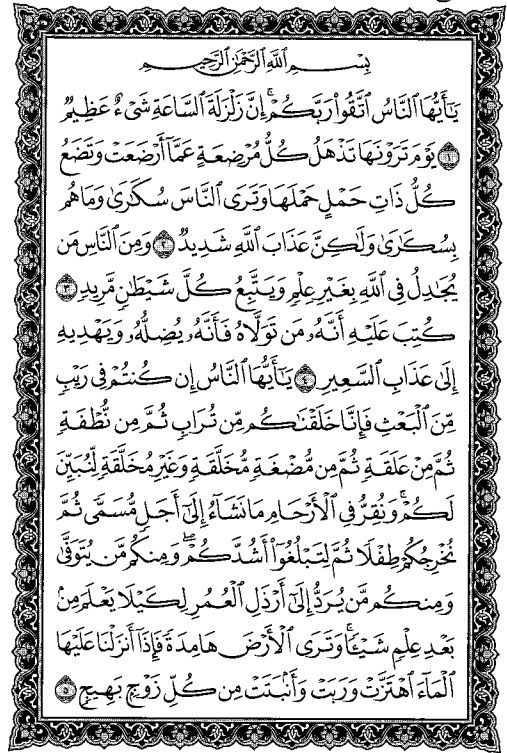 بِسْمِ ٱللَّهِ ٱلرَّحْمَٰنِ ٱلرَّحِيمِ
يَٰٓأَيُّهَا ٱلنَّاسُ ٱتَّقُوا۟ رَبَّكُمْ ۚ إِنَّ زَلْزَلَةَ ٱلسَّاعَةِ شَىْءٌ عَظِيمٌ
١ يَوْمَ تَرَوْنَهَا تَذْهَلُ كُلُّ مُرْضِعَةٍ عَمَّآ أَرْضَعَتْ وَتَضَعُ
كُلُّ ذَاتِ حَمْلٍ حَمْلَهَا وَتَرَى ٱلنَّاسَ سُكَٰرَىٰ وَمَا هُم
بِسُكَٰرَىٰ وَلَٰكِنَّ عَذَابَ ٱللَّهِ شَدِيدٌ ٢ وَمِنَ ٱلنَّاسِ مَن
يُجَٰدِلُ فِى ٱللَّهِ بِغَيْرِ عِلْمٍ وَيَتَّبِعُ كُلَّ شَيْطَٰنٍ مَّرِيدٍ ٣
كُتِبَ عَلَيْهِ أَنَّهُۥ مَن تَوَلَّاهُ فَأَنَّهُۥ يُضِلُّهُۥ وَيَهْدِيهِ
إِلَىٰ عَذَابِ ٱلسَّعِيرِ ٤ يَٰٓأَيُّهَا ٱلنَّاسُ إِن كُنتُمْ فِى رَيْبٍ
مِّنَ ٱلْبَعْثِ فَإِنَّا خَلَقْنَٰكُم مِّن تُرَابٍ ثُمَّ مِن نُّطْفَةٍ
ثُمَّ مِنْ عَلَقَةٍ ثُمَّ مِن مُّضْغَةٍ مُّخَلَّقَةٍ وَغَيْرِ مُخَلَّقَةٍ لِّنُبَيِّنَ
لَكُمْ ۚ وَنُقِرُّ فِى ٱلْأَرْحَامِ مَا نَشَآءُ إِلَىٰٓ أَجَلٍ مُّسَمًّى ثُمَّ
نُخْرِجُكُمْ طِفْلًا ثُمَّ لِتَبْلُغُوٓا۟ أَشُدَّكُمْ ۖ وَمِنكُم مَّن يُتَوَفَّىٰ
وَمِنكُم مَّن يُرَدُّ إِلَىٰٓ أَرْذَلِ ٱلْعُمُرِ لِكَيْلَا يَعْلَمَ مِنۢ
بَعْدِ عِلْمٍ شَيْـًٔا ۚ وَتَرَى ٱلْأَرْضَ هَامِدَةً فَإِذَآ أَنزَلْنَا عَلَيْهَا
ٱلْمَآءَ ٱهْتَزَّتْ وَرَبَتْ وَأَنۢبَتَتْ مِن كُلِّ زَوْجٍۭ بَهِيجٍ ٥